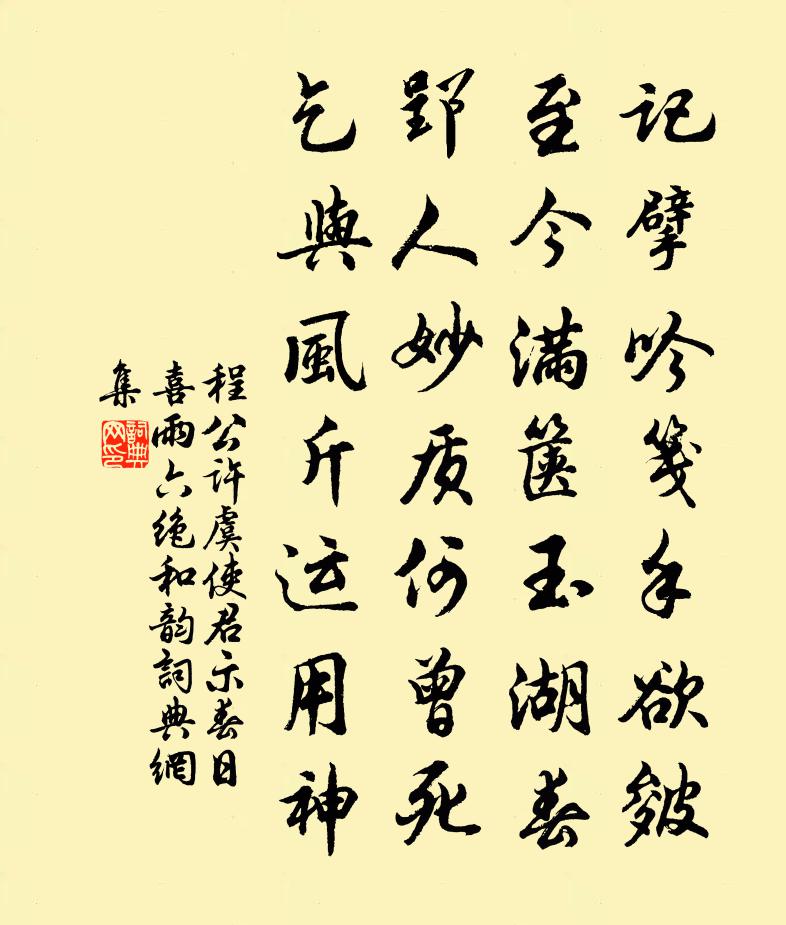 记擘吟笺手欲皴
至今满箧玉湖春
郢人妙质何曾死
乞與風斤运用神
程公许虞使君示春日
喜雨六绝和韵詞典網
集
詞典网印